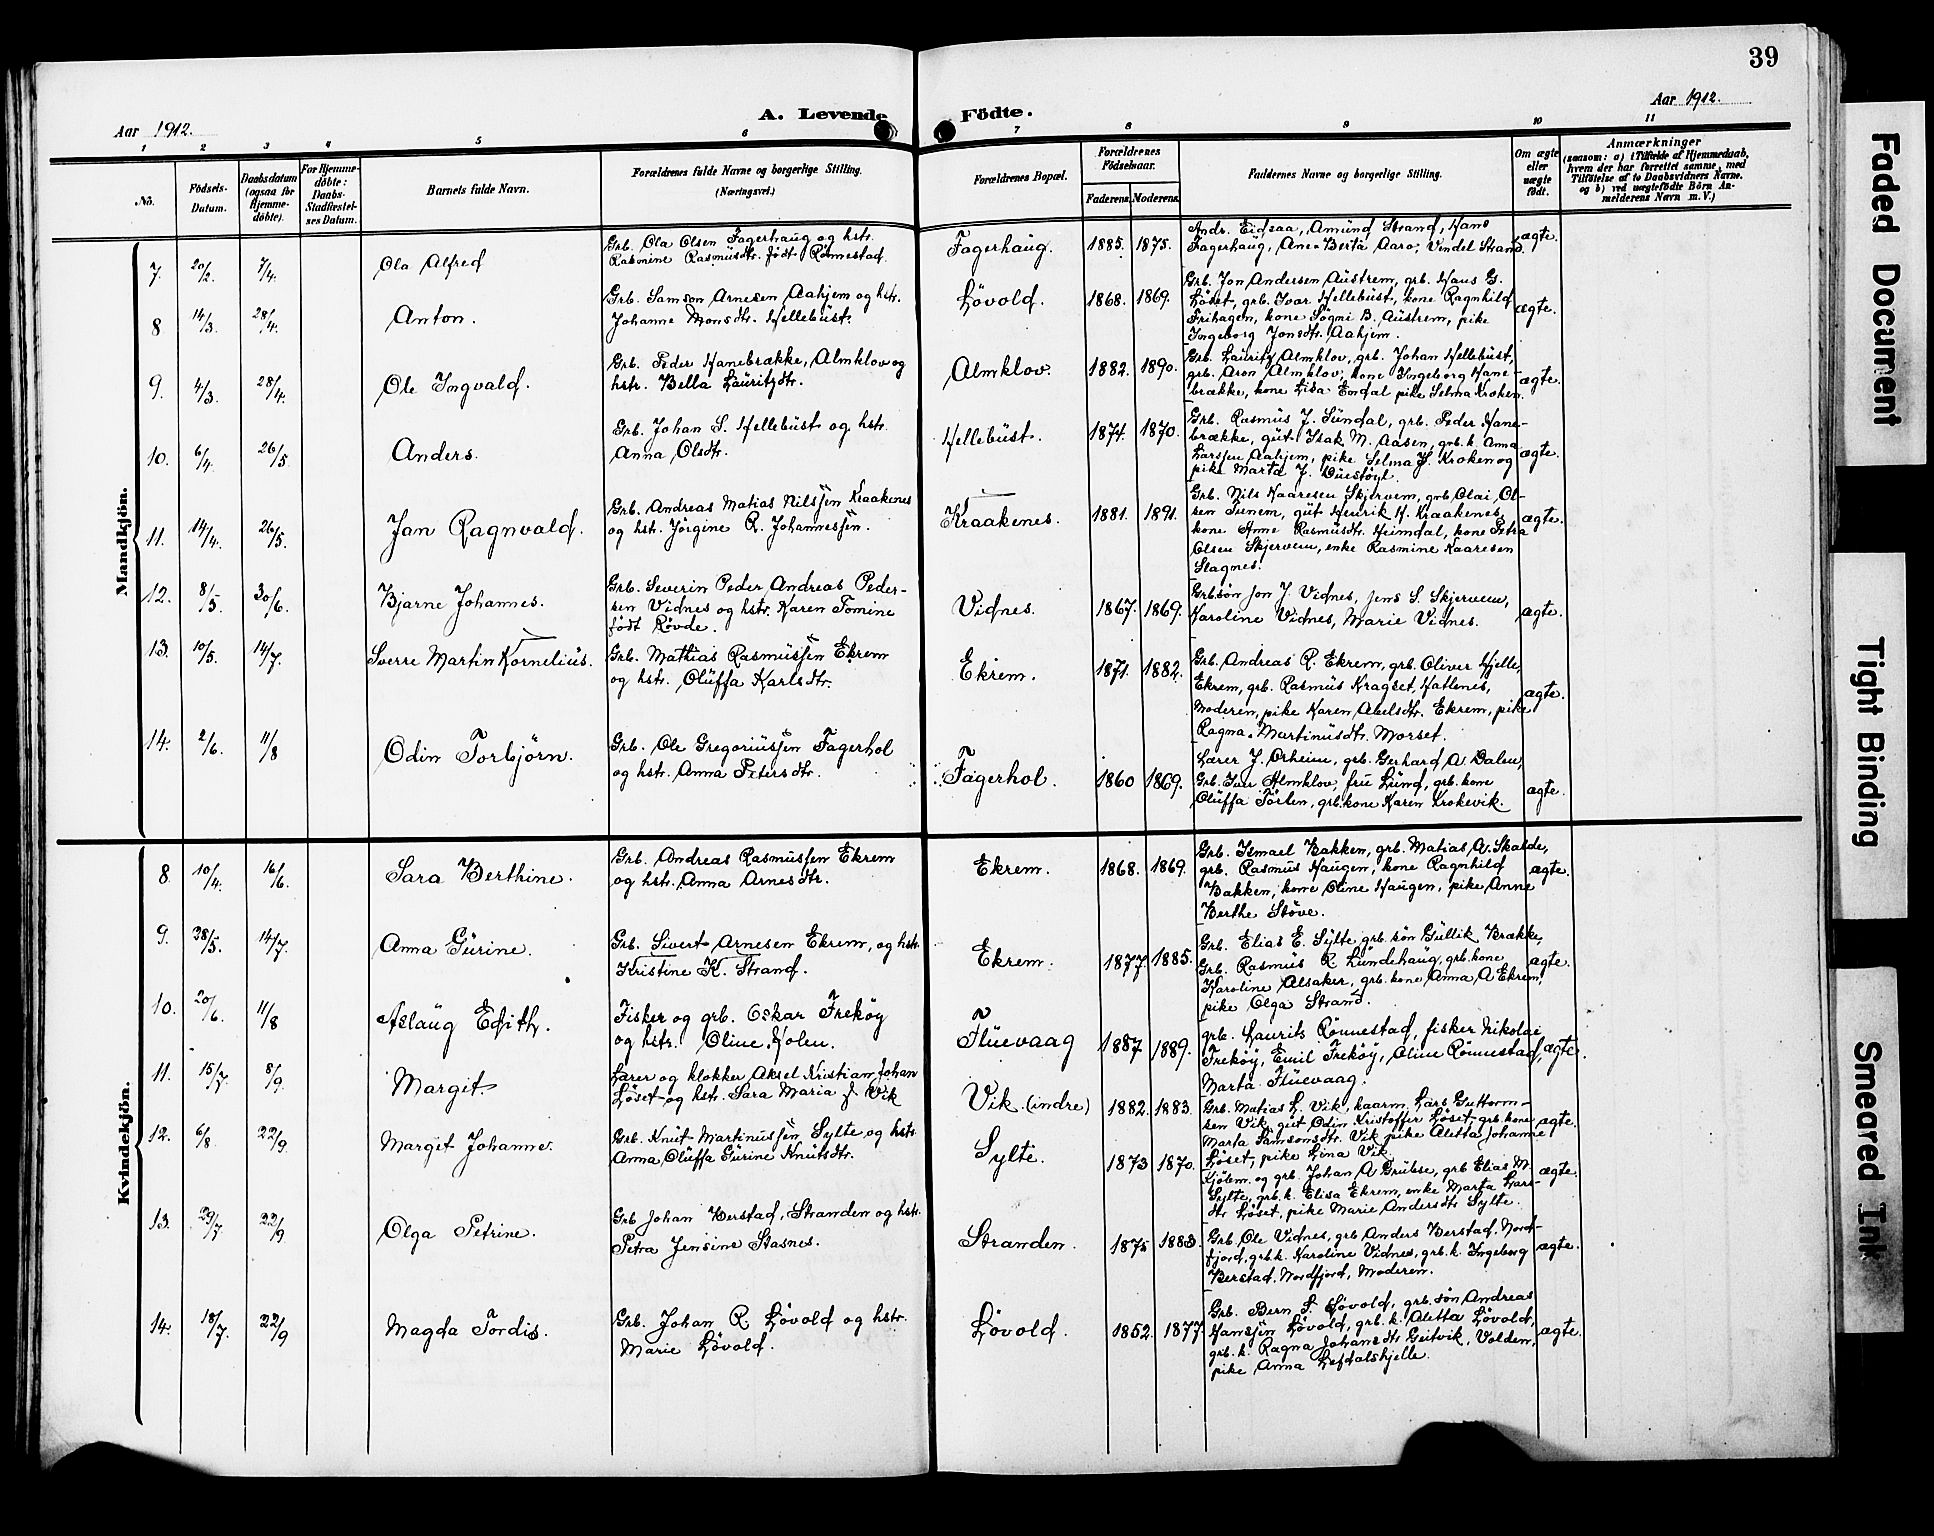 39
Aar 1912.
A. Levende Födte.
Aar 1912.
1 2 3 4 5 6 7. 8 9 10 11
No.
Födsels-Datum.
Daabsdatum (ogsaa for Hjemme-döbte).
For Hjemme-döbte: Daabs-Stadfæstel-ses Datum.
Barnets fulde Navn.
Forældrenes fulde Navne og borgerlige Stilling.
(Næringsvei.)
Forældrenes Bopæl.
Forældrenes Födselsaar.
Faderens. Moderens.
Faddernes Navne og borgerlige Stilling.
Om ægte eller uægte födt.
Anmærkninger
(saasom: a) i Tilfælde af Hjemmedaab,
hvem der har forrettet samme, med
Tilföielse af to Daabsvidners Navne.
og b) ved uægtefödte Börn An-
melderens Navn m. V.)
Mandkjön.
7. 20/2. 7/4. Ola Alfred
Grb. Ola Olsen Fagerhaug og hstr.
Rasmine Rasmusdtr. födt Rönnestad.
Fagerhaug. 1885. 1875.
Andr. Eidsaa, Amund Strand, Hans
Fagerhaug, Ane-Berta Aarö, Vindel Strand.
ægte.
8 14/3. 28/4. Anton.
Grb. Samson Arnesen Aahjem og hstr.
Johanne Monsdtr. Hellebust.
Lövold. 1868. 1869.
Grb. Jon Andersen Austrem, grb. Hans G.
Löset, grb. Ivar Hellebust, kone Ragnhild
Frihagen, kone Sögni B. Austrem, pike
Ingeborg Jonsdtr. Aahjem.
ægte.
9. 4/3. 28/4. Ole Ingvald.
Grb. Peder Hanebrække, Almklov og
hstr. Bella Lauritzdtr.
Almklov. 1882. 1890.
Grb. Lauritz Almklov, grb. Johan Hellebust,
grb. Aron Almklov, kone Ingeborg Hane-
brække, kone Lisa Endal pike Selma Kroken.
ægte.
10. 6/4. 26/5. Anders.
Grb. Johan S. Hellebust og hstr.
Anna Olsdtr.
Hellebust. 1874. 1870.
Grb. Rasmus J. Sundal, grb. Peder Hane-
brække, gut Isak M. Aasen, grb. k. Anna
Larssen Aahjem, pike Selma H. Kroken og
pike Marta J.
ægte.
11. 14/4. 26/5. Jan Ragnvald.
Grb. Andreas Matias Nilssen Kraakenes
og hstr. Jörgine R. Johannessen.
Kraakenes. 1881. 1891.
Grb. Nils Kaaresen Skjervem, grb. Olai Ol-
sen Tunem, gut Henrik H. Kraakenes,
kone Anne Rasmusdtr. Heimdal, kone Petra
Olsen Skjervem, enke Rasmine Kaaresen
Slagnes.
ægte.
12. 8/5. 30/6. Bjarne Johannes.
Grb. Severin Peder Andreas Peder-
sen Vidnes og hstr. Karen Tomine
födt Rövde.
Vidnes. 1867. 1869.
Grbsön Jon J. Vidnes, Jens S. Skjervem,
Karoline Vidnes, Marie Vidnes.
ægte.
13. 10/5. 14/7. Sverre Martin Kornelius.
Grb. Mathias Rasmussen Ekrem
og hstr. Oluffa Karlsdtr.
Ekrem. 1871. 1882.
Grb. Andreas R. Ekrem, grb. Oliver Hjelle,
Ekrem, grb. Rasmus Kragset, Hatlenes,
Moderen, pike Karen Abelsdtr. Ekrem, pike
Ragna Martinusdtr. Morset.
ægte.
14. 2/6. 11/8 Odin Torbjörn.
Grb. Ole Gregoriussen Fagerhol
og hstr. Anna Petersdtr.
Fagerhol. 1860 1869.
Lærer J. Orheim, grb. Gerhard A. Dalen,
Grb. Iver Almklov, fru Lund, grb. kone
Oluffa Törlen, grb. kone Karen Krokevik.
ægte.
Kvindekjön.
8. 10/4. 16/6. Sara Berthine.
Grb. Andreas Rasmussen Ekrem
og hstr. Anna Arnesdtr.
Ekrem. 1868. 1869.
Grb. Ismael Bakken, grb. Matias A. Skaide,
grb. Rasmus Haugen, kone Ragnhild
Bakken, kone Oline Haugen, pike Anne
Berthe Stöve.
ægte.
9. 28/5. 14/7. Anna Gurine.
Grb. Sivert Arnesen Ekrem, og hstr.
Kristine K. Strand.
Ekrem. 1877 1885.
Grb. Elias E. Sylte, grb. sön Gullik Brække,
Grb. Rasmus R. Lundehaug, grb. kone
Karoline Alsaker, grb. kone Anna A Ekrem,
pike Olga Strand.
ægte.
10. 20/6. 11/8 Aslaug Edith.
Fisker og grb. Oskar Freköy
og hstr. Oline Holen.
Fluevaag 1887 1889.
grb. Laurits Rönnestad, fisker Nikolai
Freköy, Emil Freköy, Oline Rönnestad,
Marta Fluevaag.
ægte.
11. 15/7. 8/9. Margit.
Lærer og klokker Aksel Kristian Johan
Löset og hstr. Sara Maria f. Vik
Vik (indre) 1882. 1883.
Grb. Matias L. Vik, kaarm. Lars Guttorm-
sen Vik, gut Odin Kristoffer Löset, grb. kone
Marta Samsonsdtr. Vik pike Aletta Johanne
Löset, pike Lina Vik.
ægte.
12. 6/8 22/9. Margit Johanne.
Grb. Knut Martinussen Sylte og hstr.
Anna Oluffa Gurine Knutsdtr.
Sylte. 1873 1870.
Kjölem. og grb. Johan A Grubse, grb Elias M.
Sylte, grb. k. Elisa Ekrem, enke Marta Lars-
dtr Löset, pike Marie Andersdtr Sylte.
ægte.
13. 29/7. 22/9 Olga Petrine.
Grb Johan Berstad, Stranden og hstr.
Petra Jensine Stasnes.
Stranden. 1875 1883.
Grb. Ole Vidnes, grb Anders Berstad, Nord-
fjord, grb. k. Karoline Vidnes, grb. k. Ingeborg
Berstad, Nordfjord, Moderen.
ægte.
14. 18/7. 22/9 Magda Tordis.
Grb. Johan R. Lövold og hstr.
Marie Lövold.
Lövold. 1852. 1877
Grb. Bern S. Lövold, grb. sön Andreas
Hanssen Lövold, grb. k. Aletta Lövold,
grb. k. Ragna Johansdtr Geitvik, Volden,
pike Anna Lefdalshjelle.
ægte.
Faded Document
Tight Binding
Smeared Ink